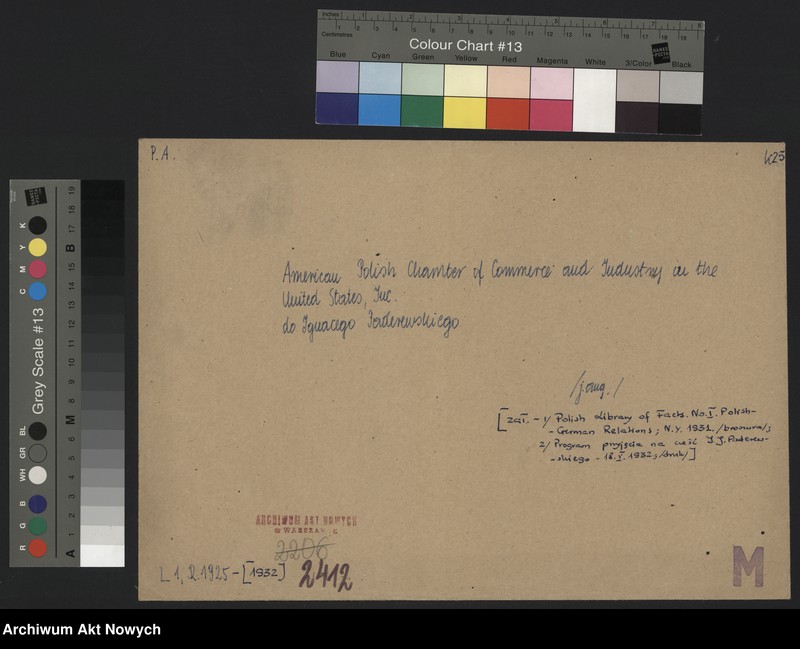 Inches 1 2 3 4 5 6 7 8
Centimetres 1 2 3 4 5 6 7 8 9 10 11 12 13 14 15 16 17 18 19
Colour Chart #13
Blue Cyan Green Yellow Red Magenta White 3/Color Black
P.A.
American Polish Chamber of Commerce and Industry in the
United States, Inc.
do Ignacego Paderewskiego
/j.ang./
[zał. - 1/ Polish Library of Facts. No. I. Polish-
-German Relations; N.Y. 1931. /broszura/;
2/ Program przyjęcia na cześć I.J. Paderew-
-skiego - 18.V.1932; /druk/]
ARCHIWUM AKT NOWYCH
w WARSZAWIE
2206
L 1, R. 1925 - [1932]
2412
M
Grey Scale #13
R G B WH GR BL C M Y K
A 1 2 3 4 5 6 M 8 9 10 11 12 13 14 15 B 17 18 19
Archiwum Akt Nowych